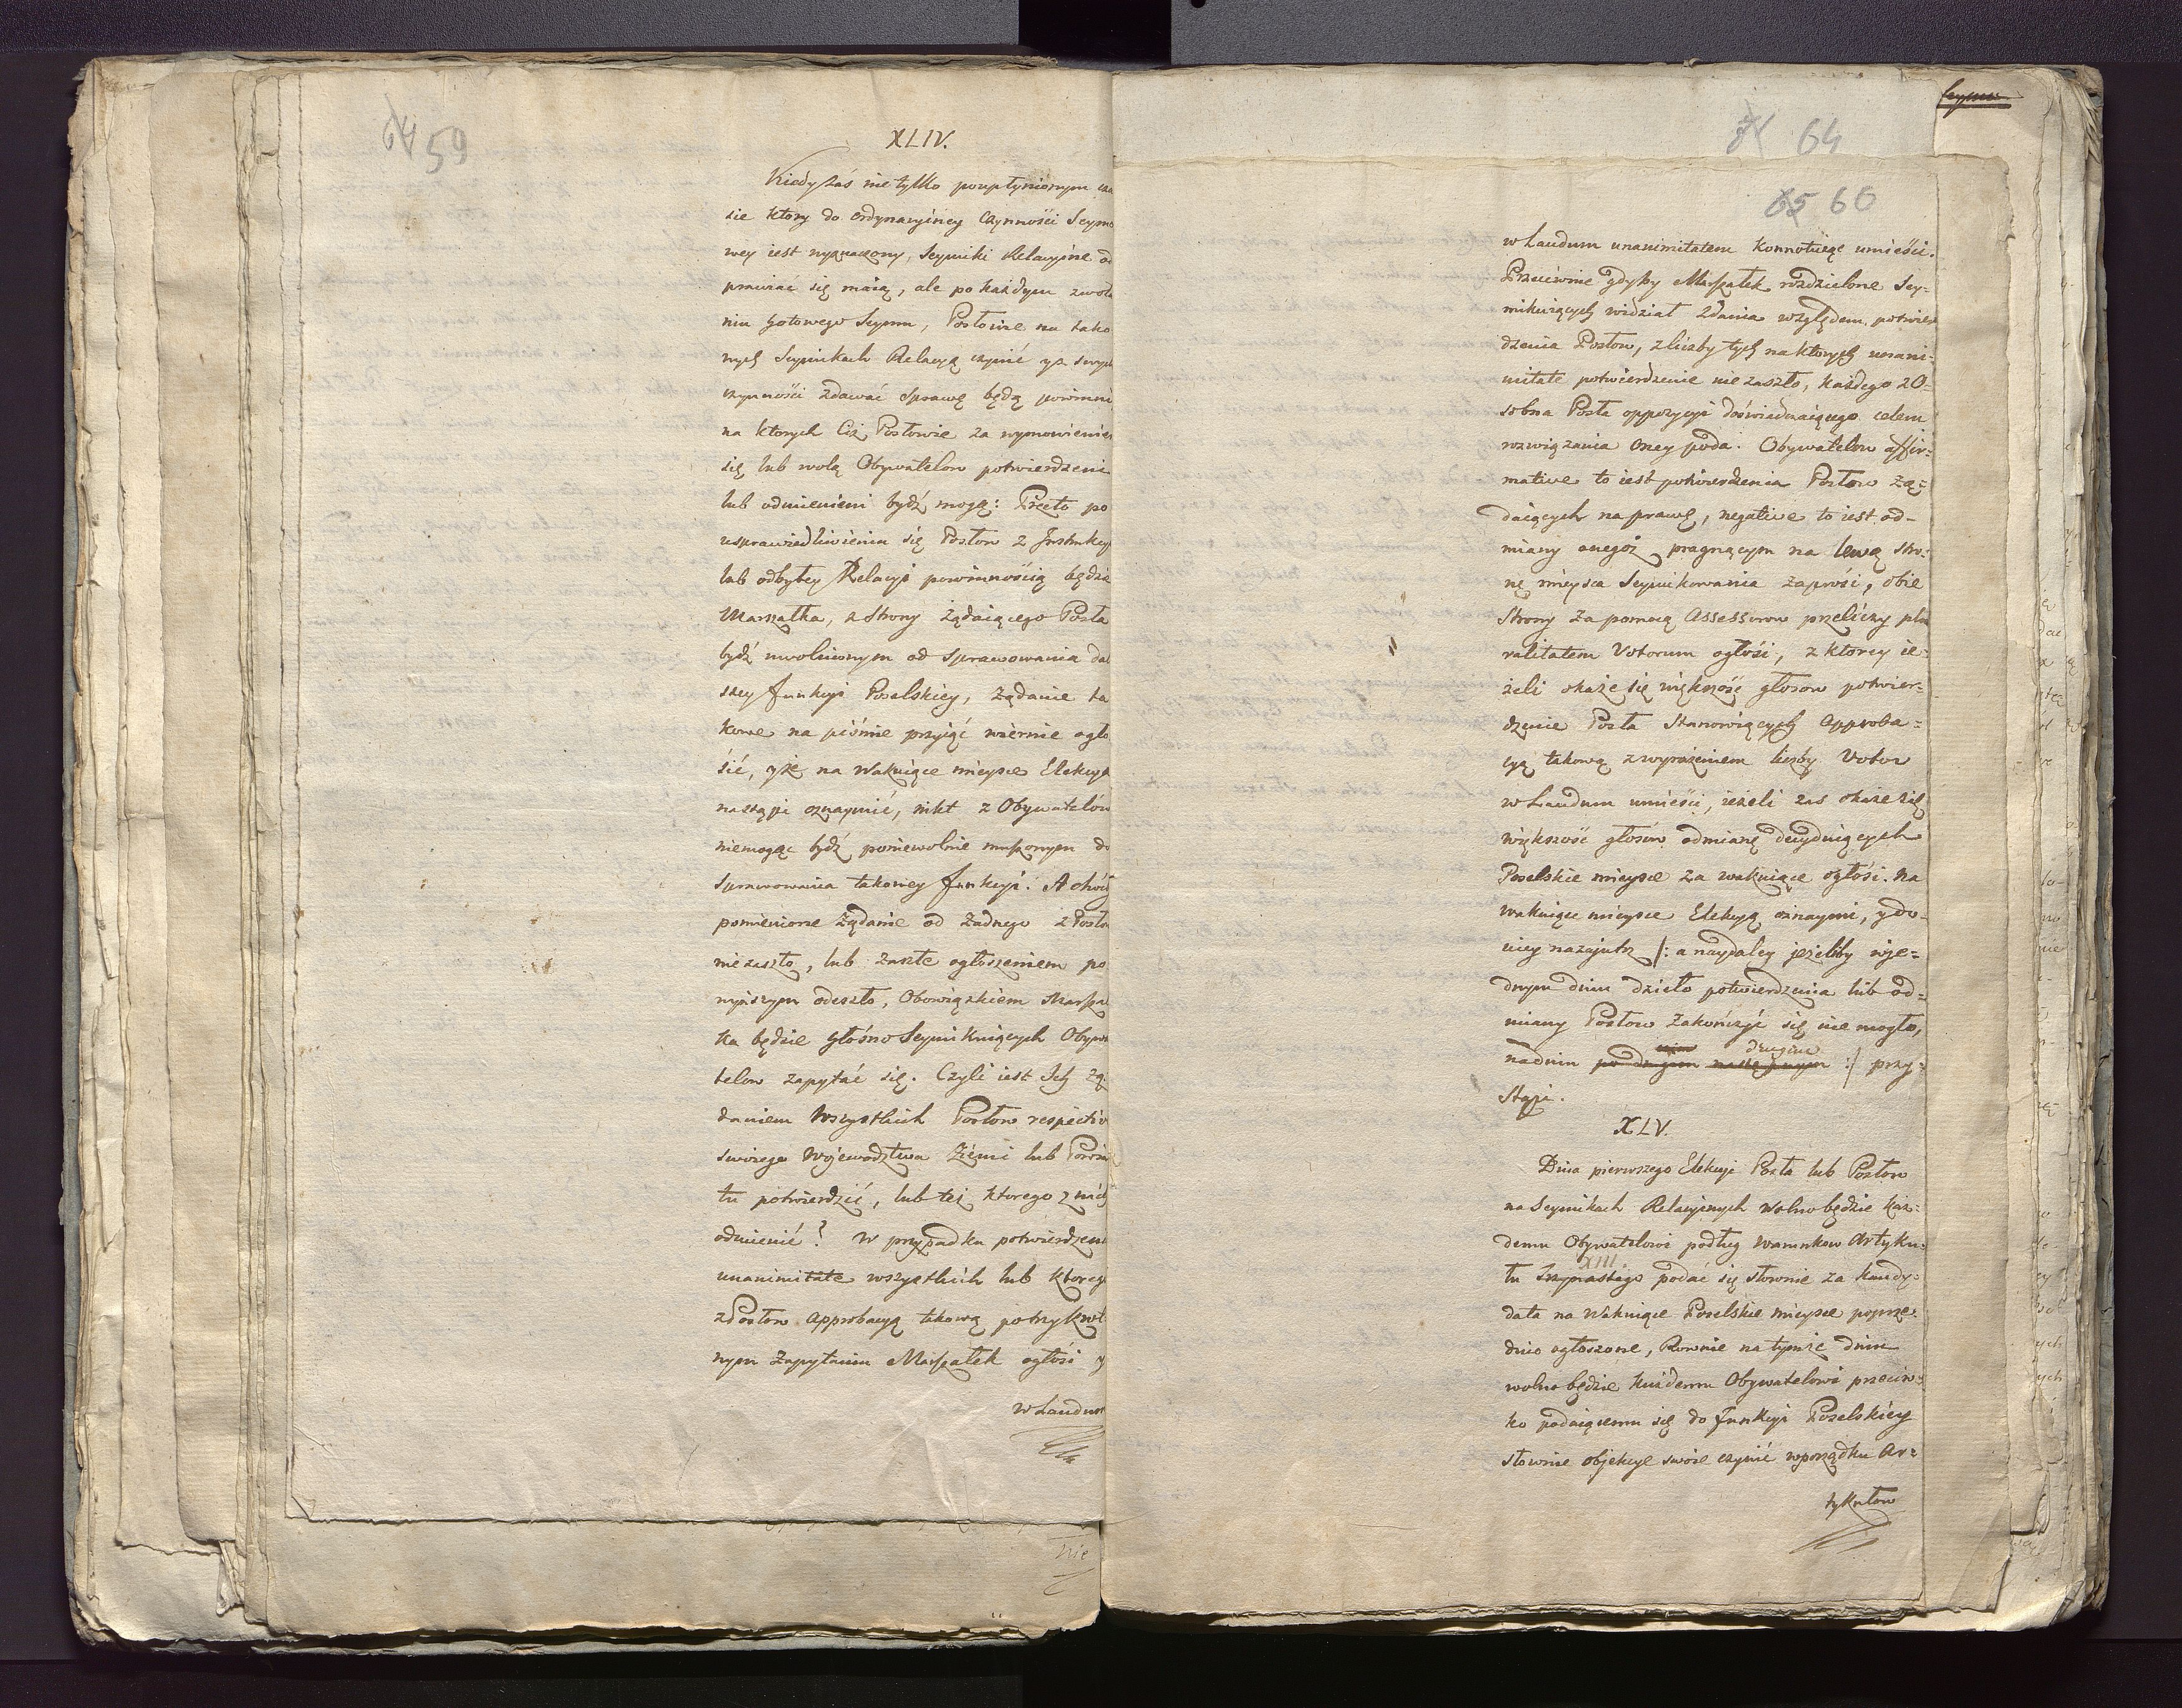 64 59
XLIV.
Kiedy zaś nie tylko po upłynionym cza
sie ktory do ordynaryiney czynności Seymo
wey iest wyznaczony, Seymiki Relacyine od
prawiać się maią, ale po każdym zwoła
niu gotowego Seymu, Posłowie na tako
wych Seymikach Relacyą czynić y z swych
czynności zdawać sprawę będą powinni,
na ktorych Ciż Posłowie za wymowieniem
się lub wolą Obywatelow potwierdzeni
lub odmienieni bydź mogą: Przeto po
usprawiedliwieniu się Posłow z Instrukcyi
lub odbytey Relacyi powinnością będzie
Marszałka, z strony żądaiącego Posła
bydź uwolnionym od sprawowania dal
szey funkcyi Poselskiey, żądanie ta
kowe na piśmie przyiąć wiernie ogło
sić, y że na wakuiące mieysce Elekcya
nastąpi oznaymić, nikt z Obywatelów
niemogąc bydź poniewolnie muszonym do
sprawowania takowey funkcyi. A choćby
pomienione żądanie od żadnego z Posłow
nie zaszło, lub zaszłe ogłoszeniem po
wyższym odeszło, Obowiązkiem Marszał
ka będzie głośno Seymikuiących Obywa
telow zapytać się. Czyli iest Ich żą
daniem wszystkich Posłow respective
swoiego Woiewodztwa Ziemi lub Powia
tu potwierdzić, lub też ktorego z nich
odmienić? W przypadku potwierdzenia
unanimitate wszystkich lub ktorego
z Posłow approbacyą takową po trzykrot
nym zapytaniu Marszałek ogłosi y
w Laudum
nie
Seymu
64
65 60
w Laudum unanimitatem konnotuiąc umieści.
Przeciwnie gdyby Marszałek rozdzielone Sey=
mikuiących widział zdania względem potwier
dzenia Posłow, z liczby tych na ktorych unani=
mitate potwierdzenie nie zaszło, każdego z O=
sobna Posła oppozycyi doświadczaiącego celem
rozwiązania oney poda. Obywatelow affir=
mative to iest potwierdzenia Posłow żą=
daiących na prawą, negative to iest od-
miany onegoż pragnącym na lewą stro=
nę mieysca Seymikowania zaprosi, obie
strony za pomocą Assessorow przeliczy plu
ralitatem Votorum ogłosi, z ktorey ie=
żeli okaże się większość głosow potwier=
dzenie Posła stanowiących approba=
cyą takową z wyrażeniem liczby Votow
w Laudum umieści, ieżeli zaś okaże się
większość głosów odmianę decyduiących
Poselskie mieysce za wakuiące ogłosi. Na
wakuiące mieysce Elekcyą oznaymi, y do
niey nazajutrz /: a naydaley jeżeliby w je=
dnym dniu dzieło potwierdzenia lub od=
miany Posłow zakończyć się nie mogło,
drugim
na dniu po drugim następnym :/ przy=
stąpi.
XLV.
Dnia pierwszego Elekcyi Posła lub Posłow
na Seymikach Relacyinych wolno będzie każ=
demu Obywatelowi podług warunkow Artyku=
XIII
łu trzynastego podać się słownie za kandy=
data na wakuiące Poselskie mieysce poprze=
dnio ogłoszone, Rownie na tymże dniu
wolno będzie każdemu Obywatelowi przeciw=
ko podaiącemu się do funkcyi Poselskiey
słownie objekcye swoie czynić w porządku Ar=
tykułow